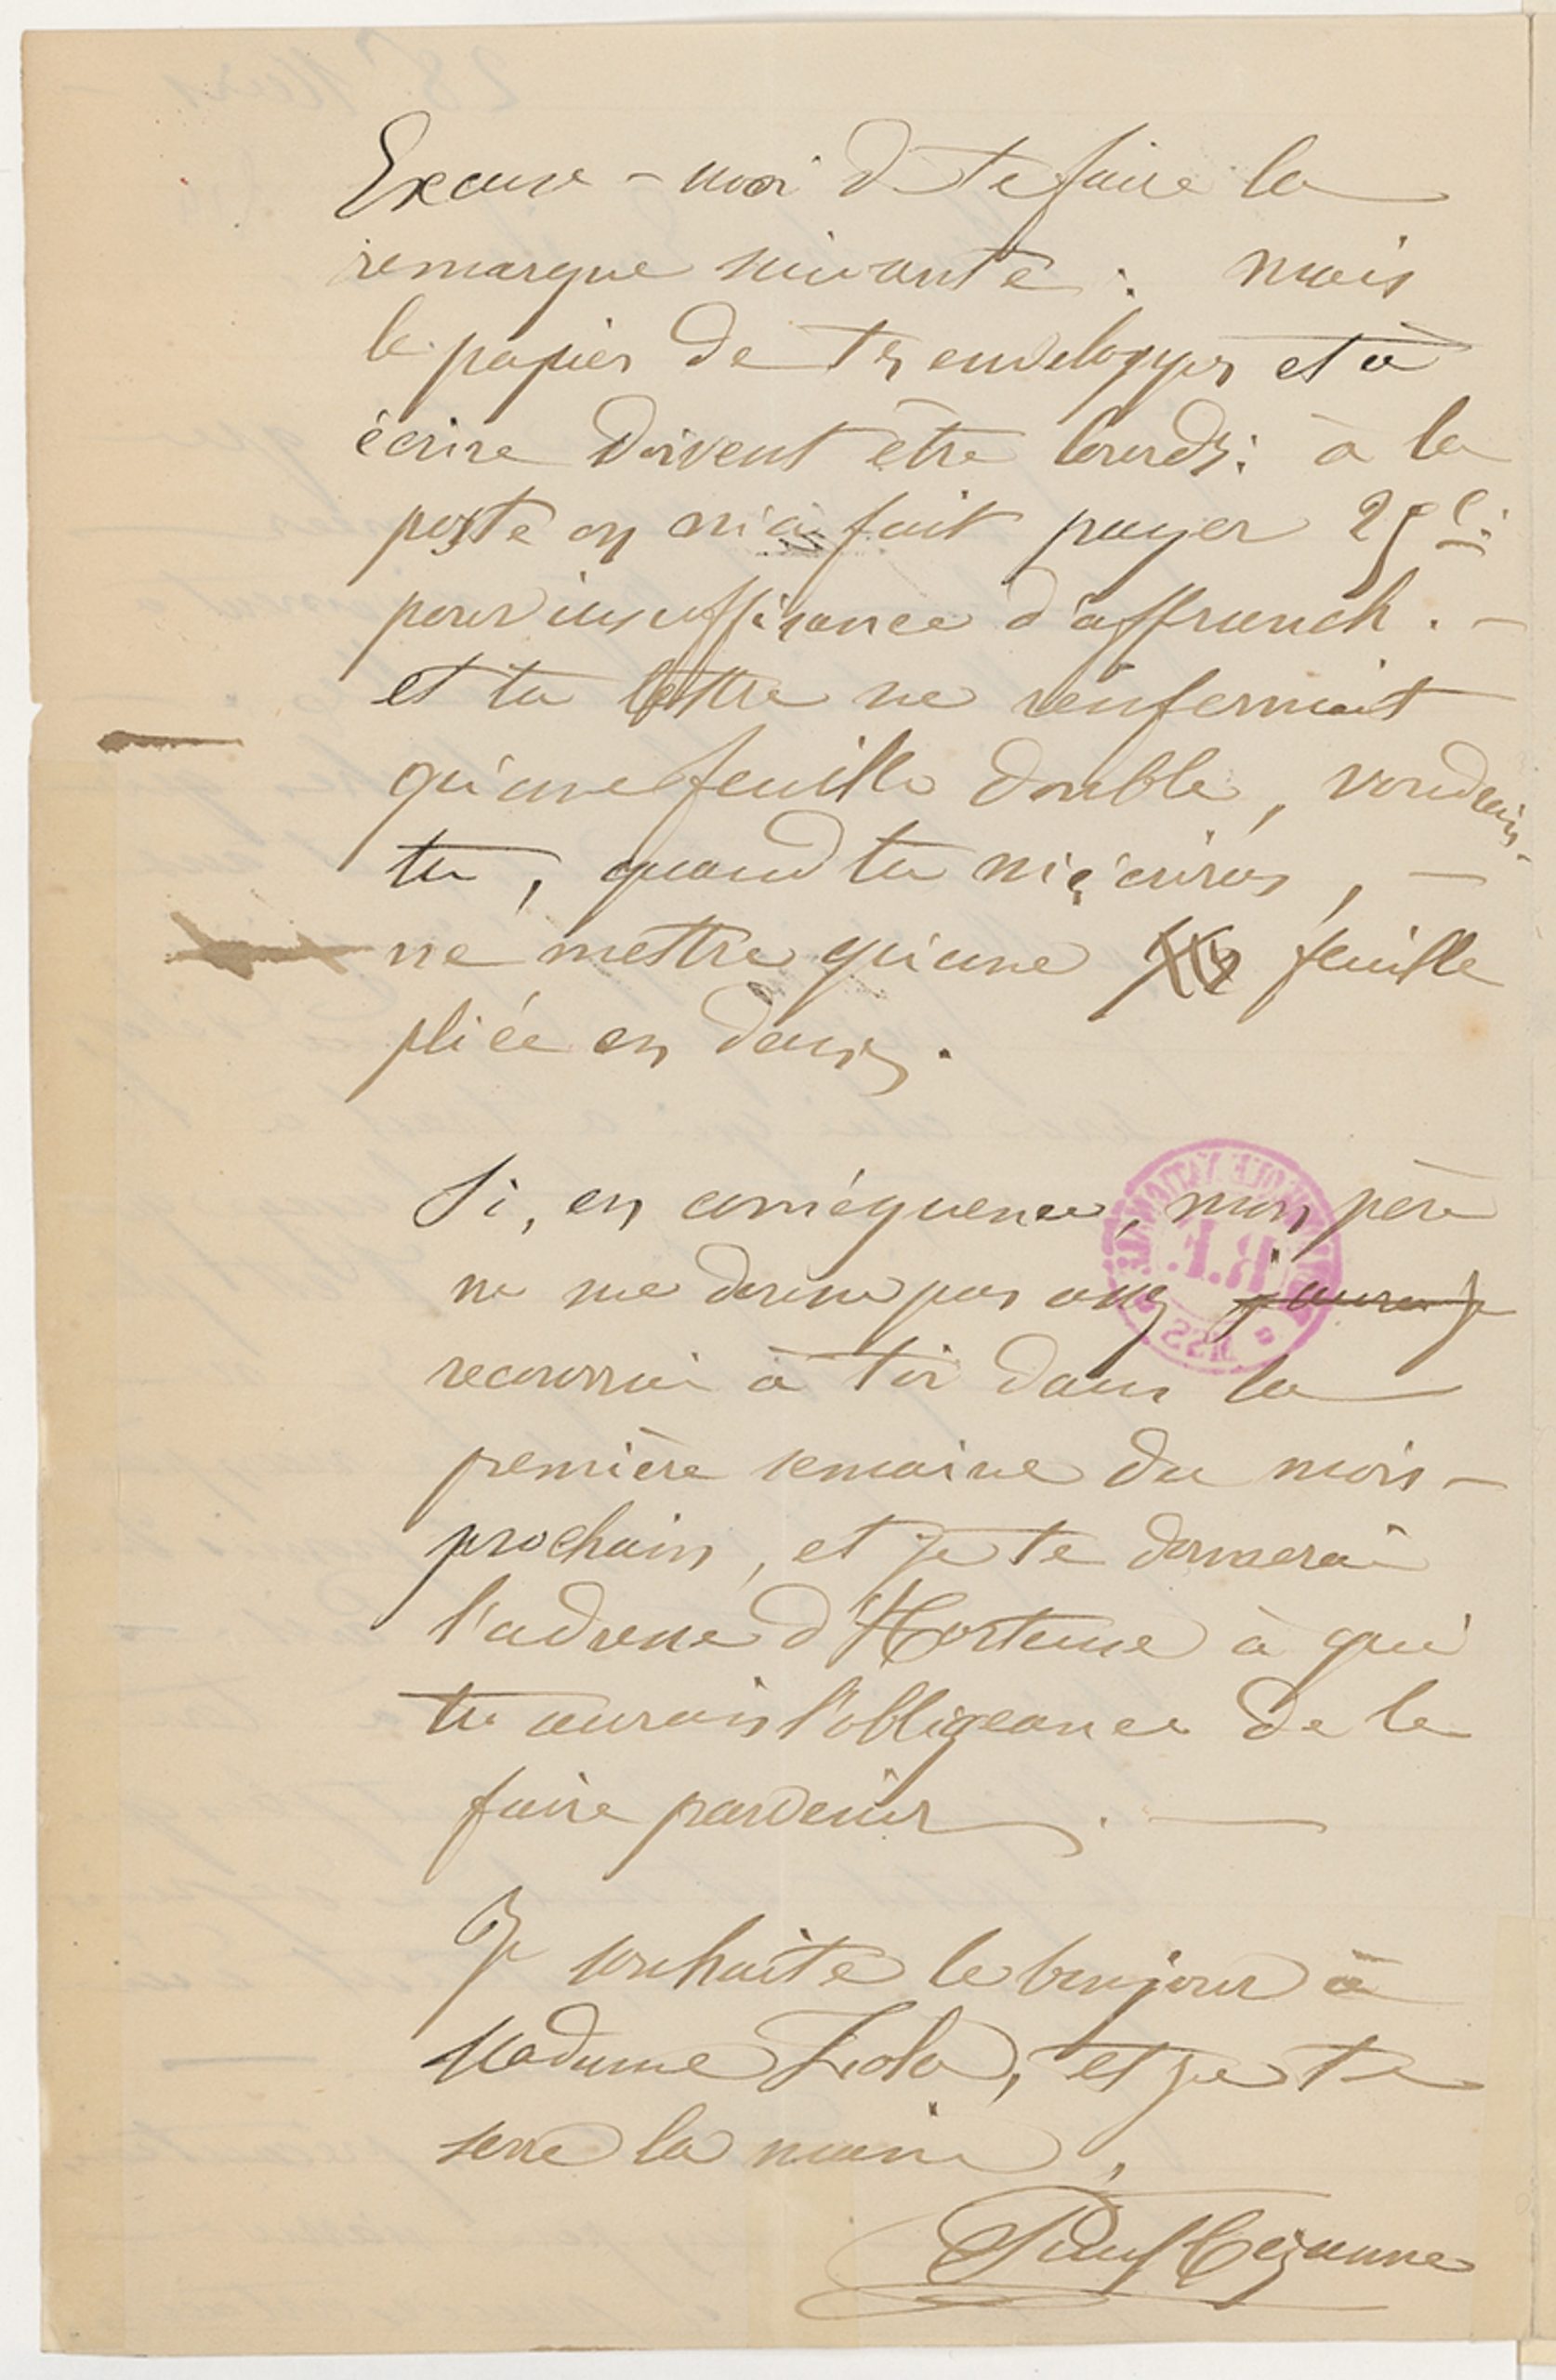 Excuse-moi de te faire la
remarque suivante : mais
le papier de tes enveloppes et à
écrire doivent être lourds : à la
poste on m'a fait payer 25 c.
pour insuffisance d'affranch. —
et ta lettre ne renfermait
qu'une feuille double, voudrais-
tu, quand tu m'écriras, —
ne mettre qu'une feuille
pliée en deux.
Si, en conséquence, mon père
ne me donne pas assez j'aurai je
recourrai à toi dans la
première semaine du mois —
prochain, et je te donnerai
l'adresse d'Hortense à qui
tu aurais l'obligeance de le
faire parvenir. —
Je souhaite le bonjour à
Madame Zola, et je te
serre la main,
Paul Cezanne
R.F.
MSS